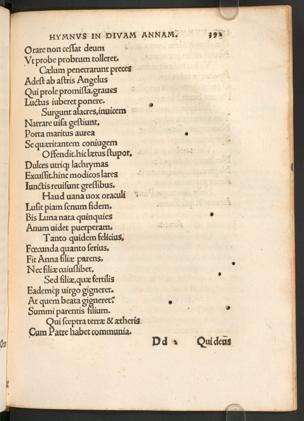 HYMNVS IN DIVAM ANNAM. 392
Orare non cessat deum
Vt probe probrum tolleret.
Cælum penetrarunt preces
Adest ab astris Angelus
Qui prole promissa, graues
Luctus iuberet ponere.
Surgunt alacres, inuicem
Narrare uisa gestiunt.
Porta maritus aurea
Se quæritantem coniugem
Offendit. hic lætus stupor,
Dulces utriq; lachrymas
Excussit. hinc modicos lares
Iunctis reuisunt gressibus.
Haud uana uox oraculi
Lusit piam senum fidem.
Bis Luna nata quinquies
Anum uidet puerperam.
Tanto quidem felicius,
Fœcunda quanto serius.
Fit Anna filiæ parens,
Nec filiæ cuiuslibet,
Sed filiæ, quæ fertilis
Eademq; uirgo gigneret.
At quem beata gigneret?
Summi parentis filium.
Qui sceptra terræ & ætheris
Cum Patre habet communia.
Dd 2 Qui deus